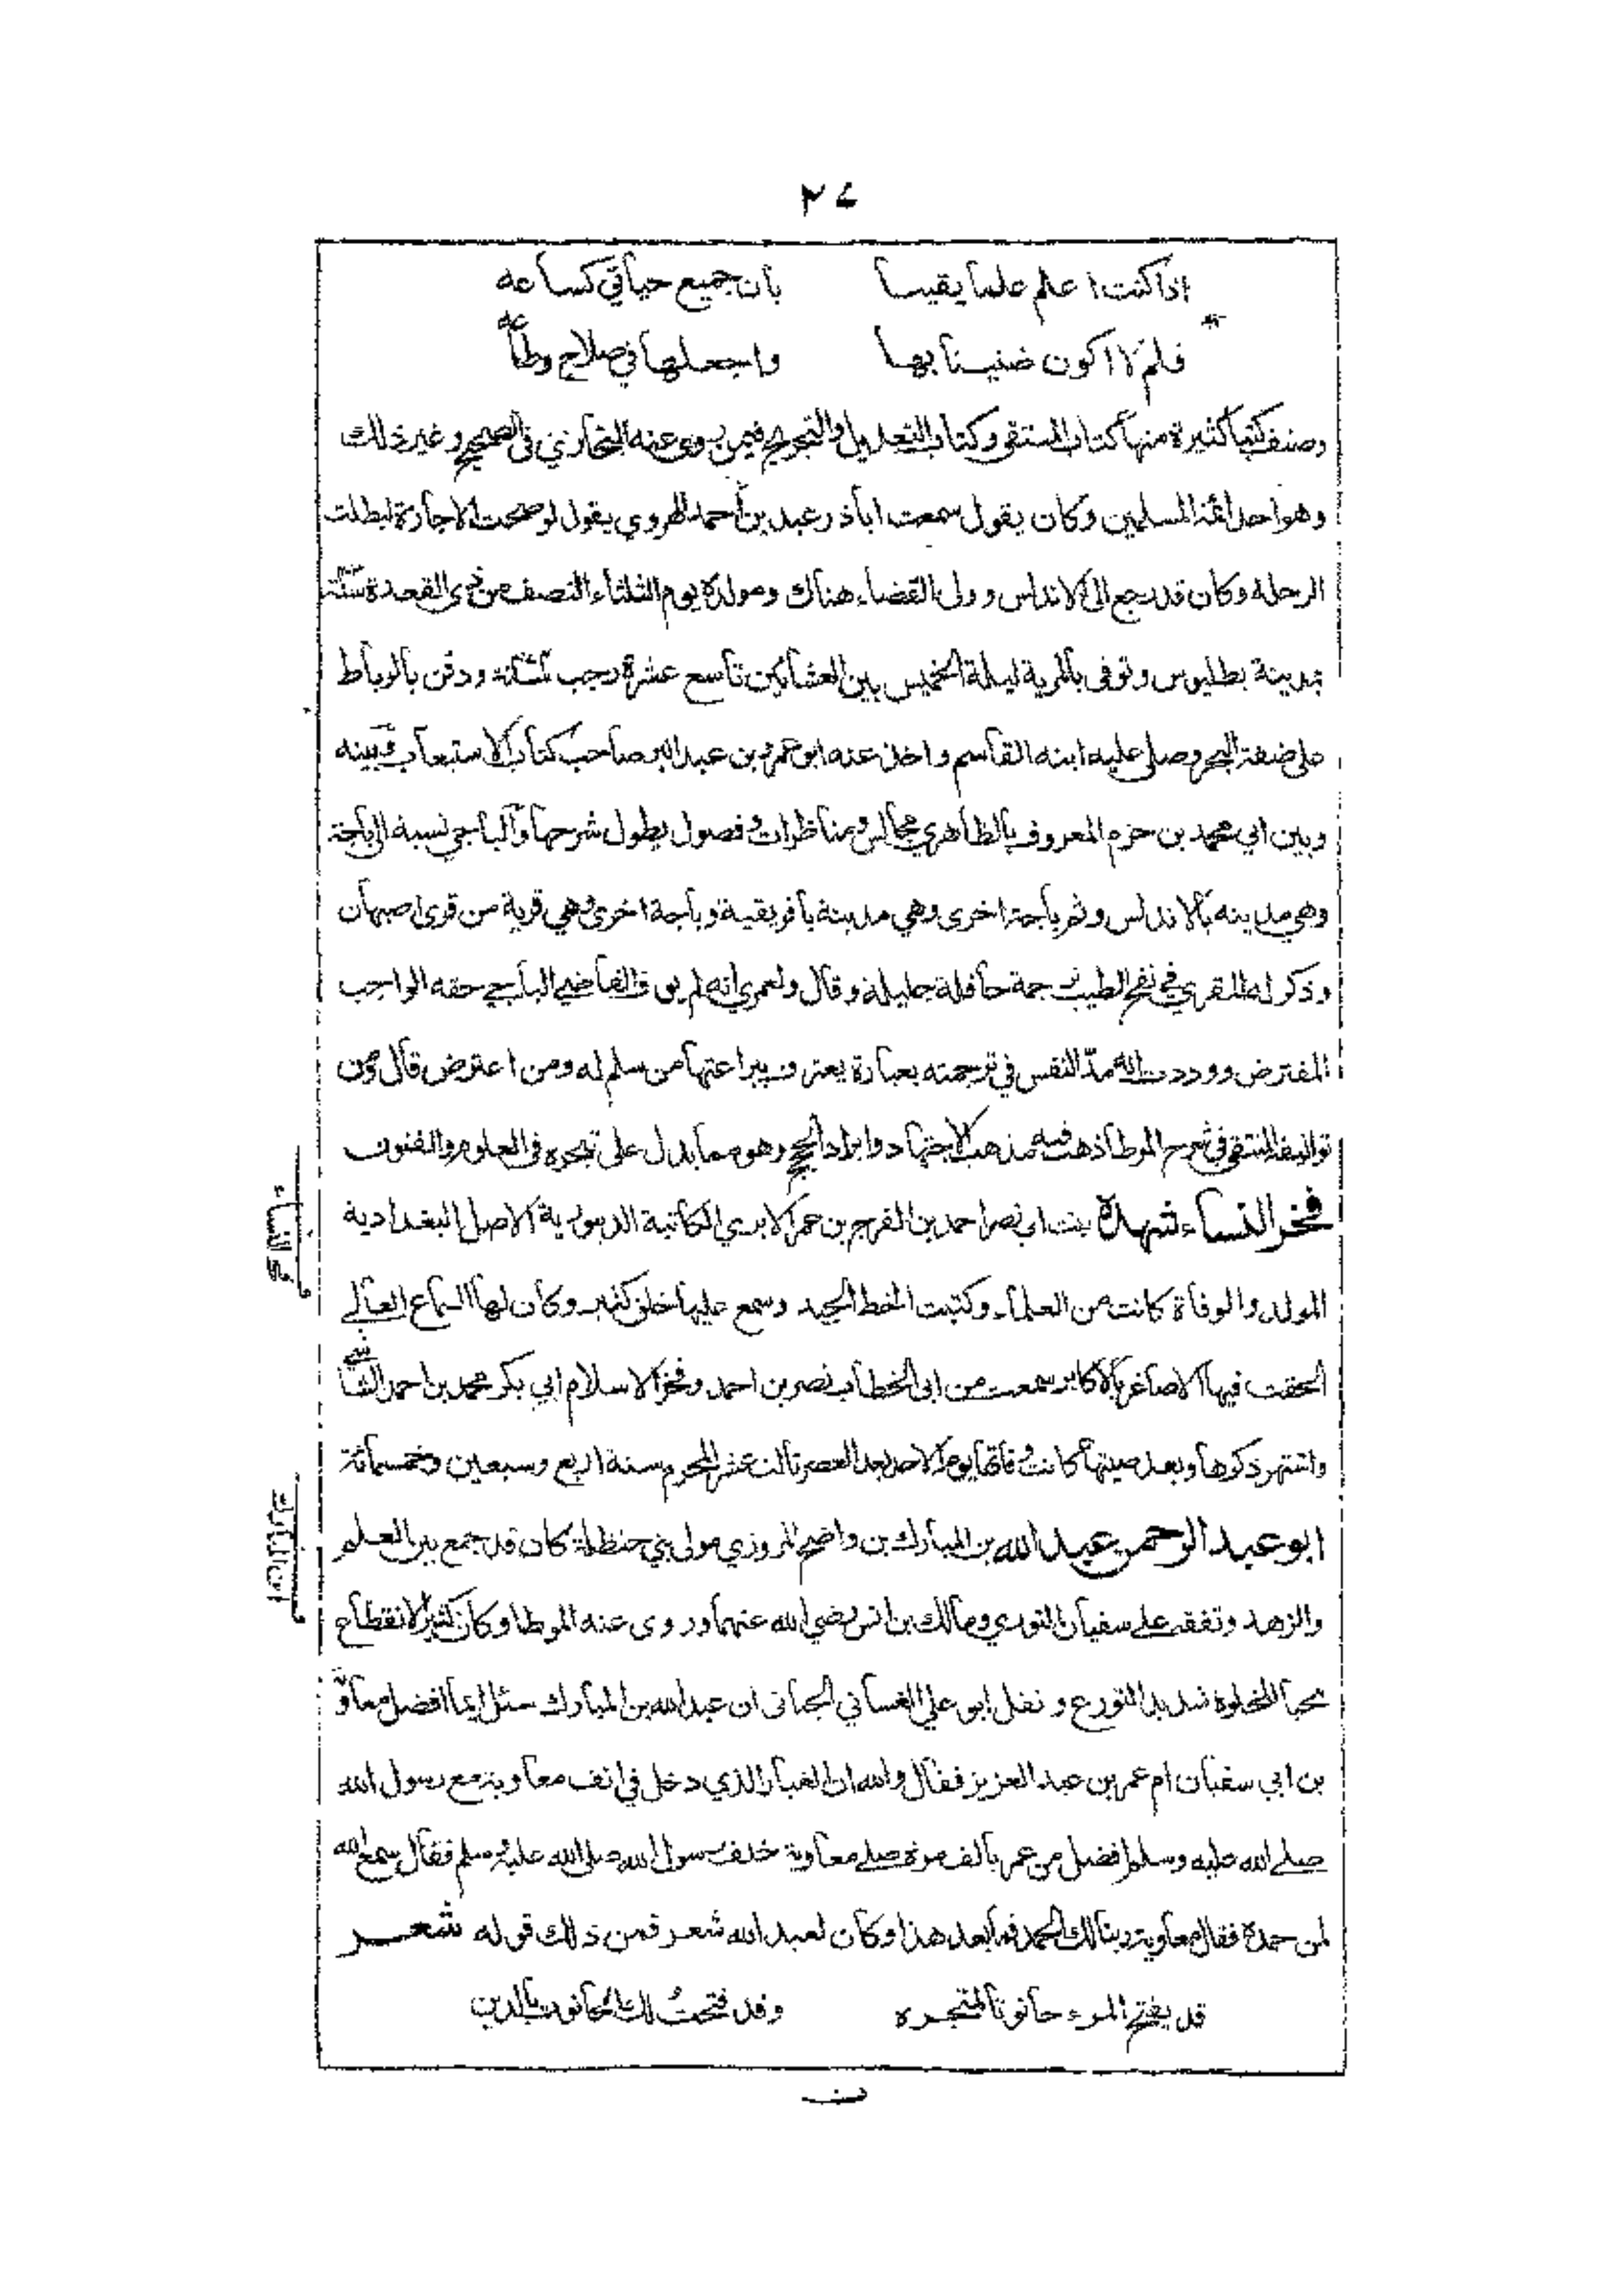 ٢٤
اذا كنت اعلم علما يقينا بأن جميع حياتي كساعه
فلم لا اكون ضنينا بها واجعلها في صلاح وطاعه
وصنف كتبا كثيرة منها كتاب المنتقى وكتاب التعديل والتجريح فيمن روى عنه البخاري في الصحيح وغير ذلك
وهو احد ائمة المسلمين وكان يقول سمعت اباذر عبد بن أحمد الهروي يقول لو صحت الاجازة لبطلت
الرحلة وكان قد رجع الى الاندلس وولى القضاء هناك ومولده يوم الثلثاء النصف من ذي القعدة سنة
بمدينة بطليوس وتوفى بالمرية ليلة الخميس بين العشائين تاسع عشرة رجب ودفن بالرباط
على ضفة البحر وصلى عليه ابنه القاسم واخذ عنه ابو عمر بن عبد البر صاحب كتاب الاستيعاب وبينه
وبين ابي محمد بن حزم المعروف بالظاهري مجالس ومناظرات وفصول يطول شرحها والباجي نسبة الى باجة
وهي مدينه بالاندلس وثم باجة اخرى وهي مدينة بافريقية وباجة اخرى وهي قرية من قرى اصبهان
وذكر له المقري في نفح الطيب ترجمة حافلة جليلة وقال ولعمري انه لم يوف القاضي الباجي حقه الواجب
المفترض ووددت انه مد النفس في ترجمته بعبارة يعترف ببراعتها من سلم له ومن اعترض قال ومن
تواليفه المنتقى في شرح الموطا ذهب فيه مذهب الاجتهاد وايراد الحجج وهو مما يدل على تبحره في العلوم والفنون
فخر النساء شهدة بنت ابي نصر احمد بن الفرج بن عمر الابري الكاتبة الدينورية الاصل البغدادية
المولد والوفاة كانت من العلماء وكتبت الخط الجيد وسمع عليها خلق كثير وكان لها السماع العالي
الحقت فيها الاصاغر بالاكابر سمعت من ابى الخطاب نصر بن احمد وفخر الاسلام ابي بكر محمد بن احمد الشاشي
واشتهر ذكرها وبعد صيتها كانت وفاتها يوم الاحد بعد العصر ثالث عشر المحرم سنة اربع وسبعين وخمسمائة
ابو عبد الرحمن عبد الله بن المبارك بن واضح المروزي مولى بني حنظلة كان قد جمع بين العلم
والزهد وتفقه على سفيان الثوري ومالك بن انس رضي الله عنهما وروى عنه الموطا وكان كثير الانقطاع
محبا للخلوة شديد التورع ونقل ابو علي الغساني الجيانى ان عبد الله بن المبارك سئل ايما افضل معاوية
بن ابي سفيان ام عمر بن عبد العزيز فقال والله ان الغبار الذي دخل في انف معاوية مع رسول الله
صلى الله عليه وسلم افضل من عمر بالف مرة صلى معاوية خلف رسول الله صلى الله عليه وسلم فقال سمع الله
لمن حمده فقال معاوية ربنا لك الحمد فما بعد هذا وكان لعبد الله شعر فمن ذلك قوله شعر
قد يفتح المرء حانوتا لمتجره وقد فتحت لك الحانوت بالدين
فخر النساء
ابن المبارك